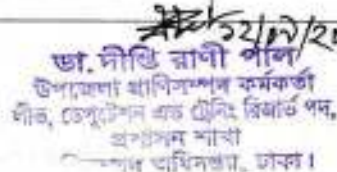 ১২/০৯/২
ডা. দীপ্তি রাণী পাল
উপজেলা প্রাণিসম্পদ কর্মকর্তা
লীভ, ডেপুটেশন এন্ড ট্রেনিং রিজার্ভ পদ,
প্রশাসন শাখা
অধিদপ্তর, ঢাকা।